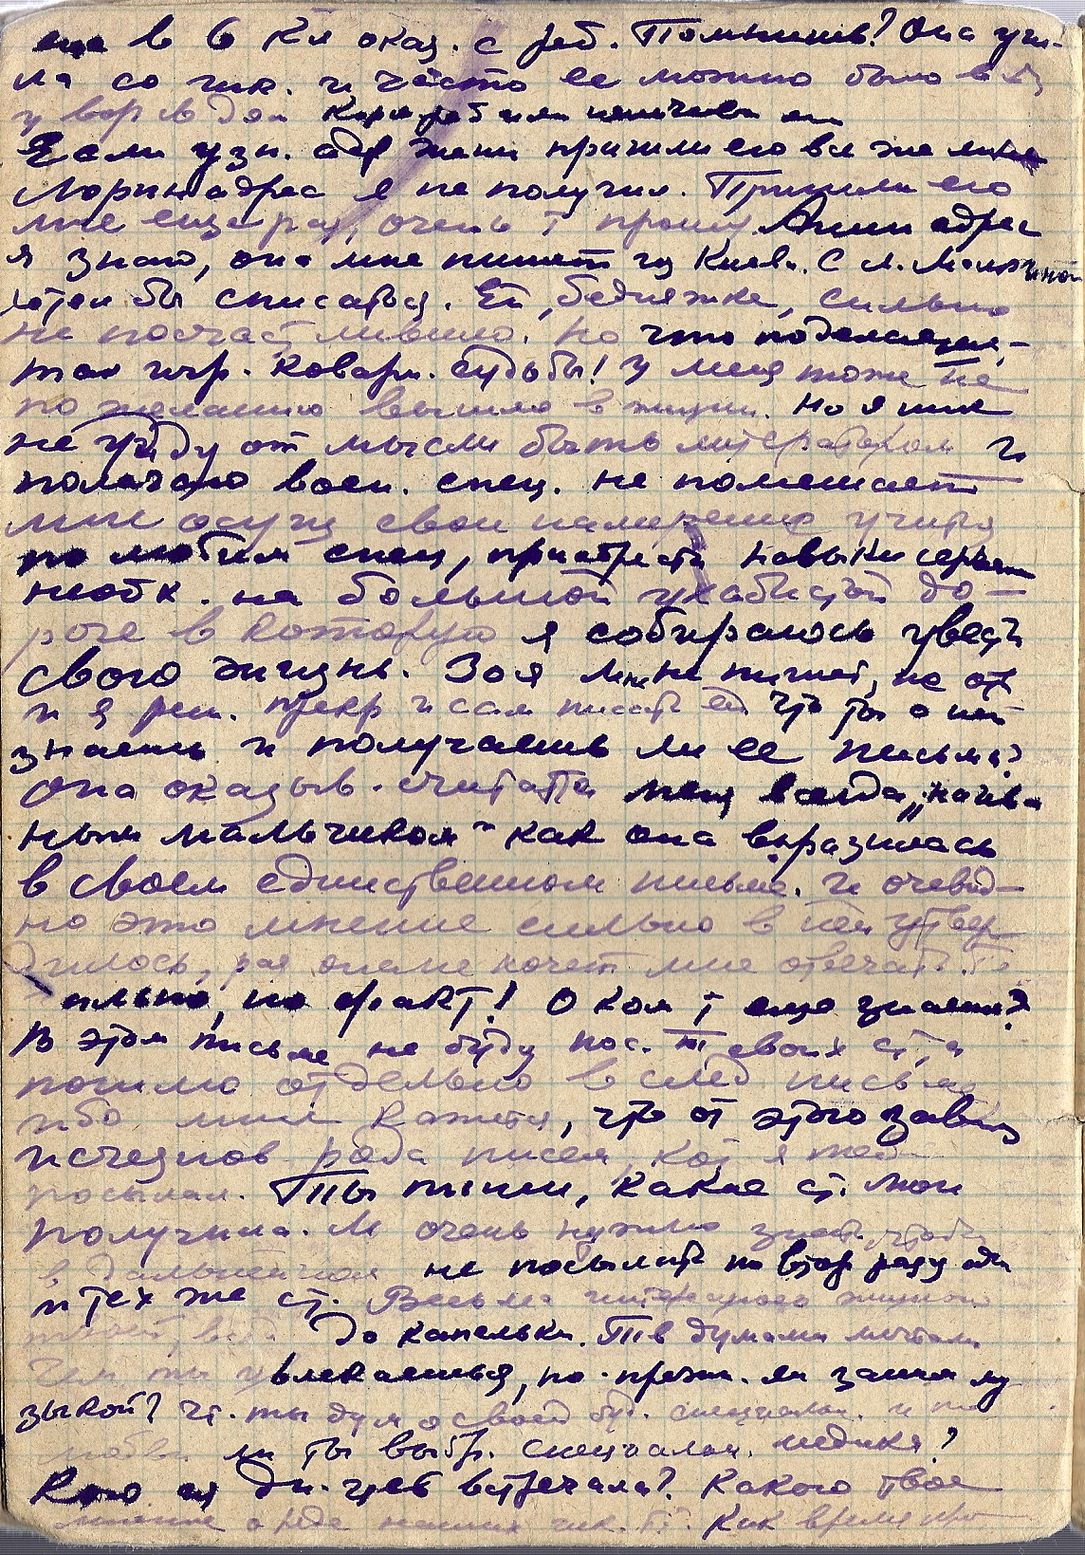 еще в 6 кл оказ. с реб. Помнишь? Она учи-
ла со шк. и часто ее можно было в
у вор в дом
Если узн. адр Жени пришли его все же мне
Лорин адрес я не получил. Пришли его
мне еще раз, очень т прошу. Анин адрес
я знаю, она мне пишет из Киева. С Л.
хотел бы списаться. Ей, бедняжке, сильно
не посчастливило. Но что поделаешь,-
так игр. коварн. судьбы! У меня тоже не
по желанию вышло в жизни. Но я ник
не уйду от мысли быть литератором и
полагаю воен. спец. не помешает
мне осущ свои намерения учиться
по любим спец, приобрести навыки
необх. на большой ухабистой до-
роге в которую я собираюсь увести
свою жизнь. Зоя мне не пишет, не отв
и я реш. прекр и сам писать ей Что ты о ней
знаешь и получаешь ли ее письма?
Она оказыв. считала меня всегда „наив-
ным мальчиком" как она выразилась
в своем единственном письме. И очевид-
но это мнение сильно в ней утвер
дилось, раз она не хочет мне отвечать.
но факт! О ком т еще знаешь?
В этом письме не буду пос. т своих ст, а
пошлю отдельно в след письме
ибо мне кажется, что от этого завис
исчезнов ряда писем, кот я тебе
посылал. Ты пиши, какие ст. мои
получила. М очень нужно знать, чтобы
в дальнейшем не посылать по втор разу одни
и тех же ст. Весьма интересуюсь жизнью
твоей, вся до капельки. Тв думами мечтами
Чем ты увлекаешься, по-прежн. ли заним му
зыкой? Чт. ты дум о своей буд. специальн. и по
любви ли ты выбр. специальн. медика?
Кого из Дн-цев встречала? Какого твое
мнение о ряде наших шк. т. Как время про-